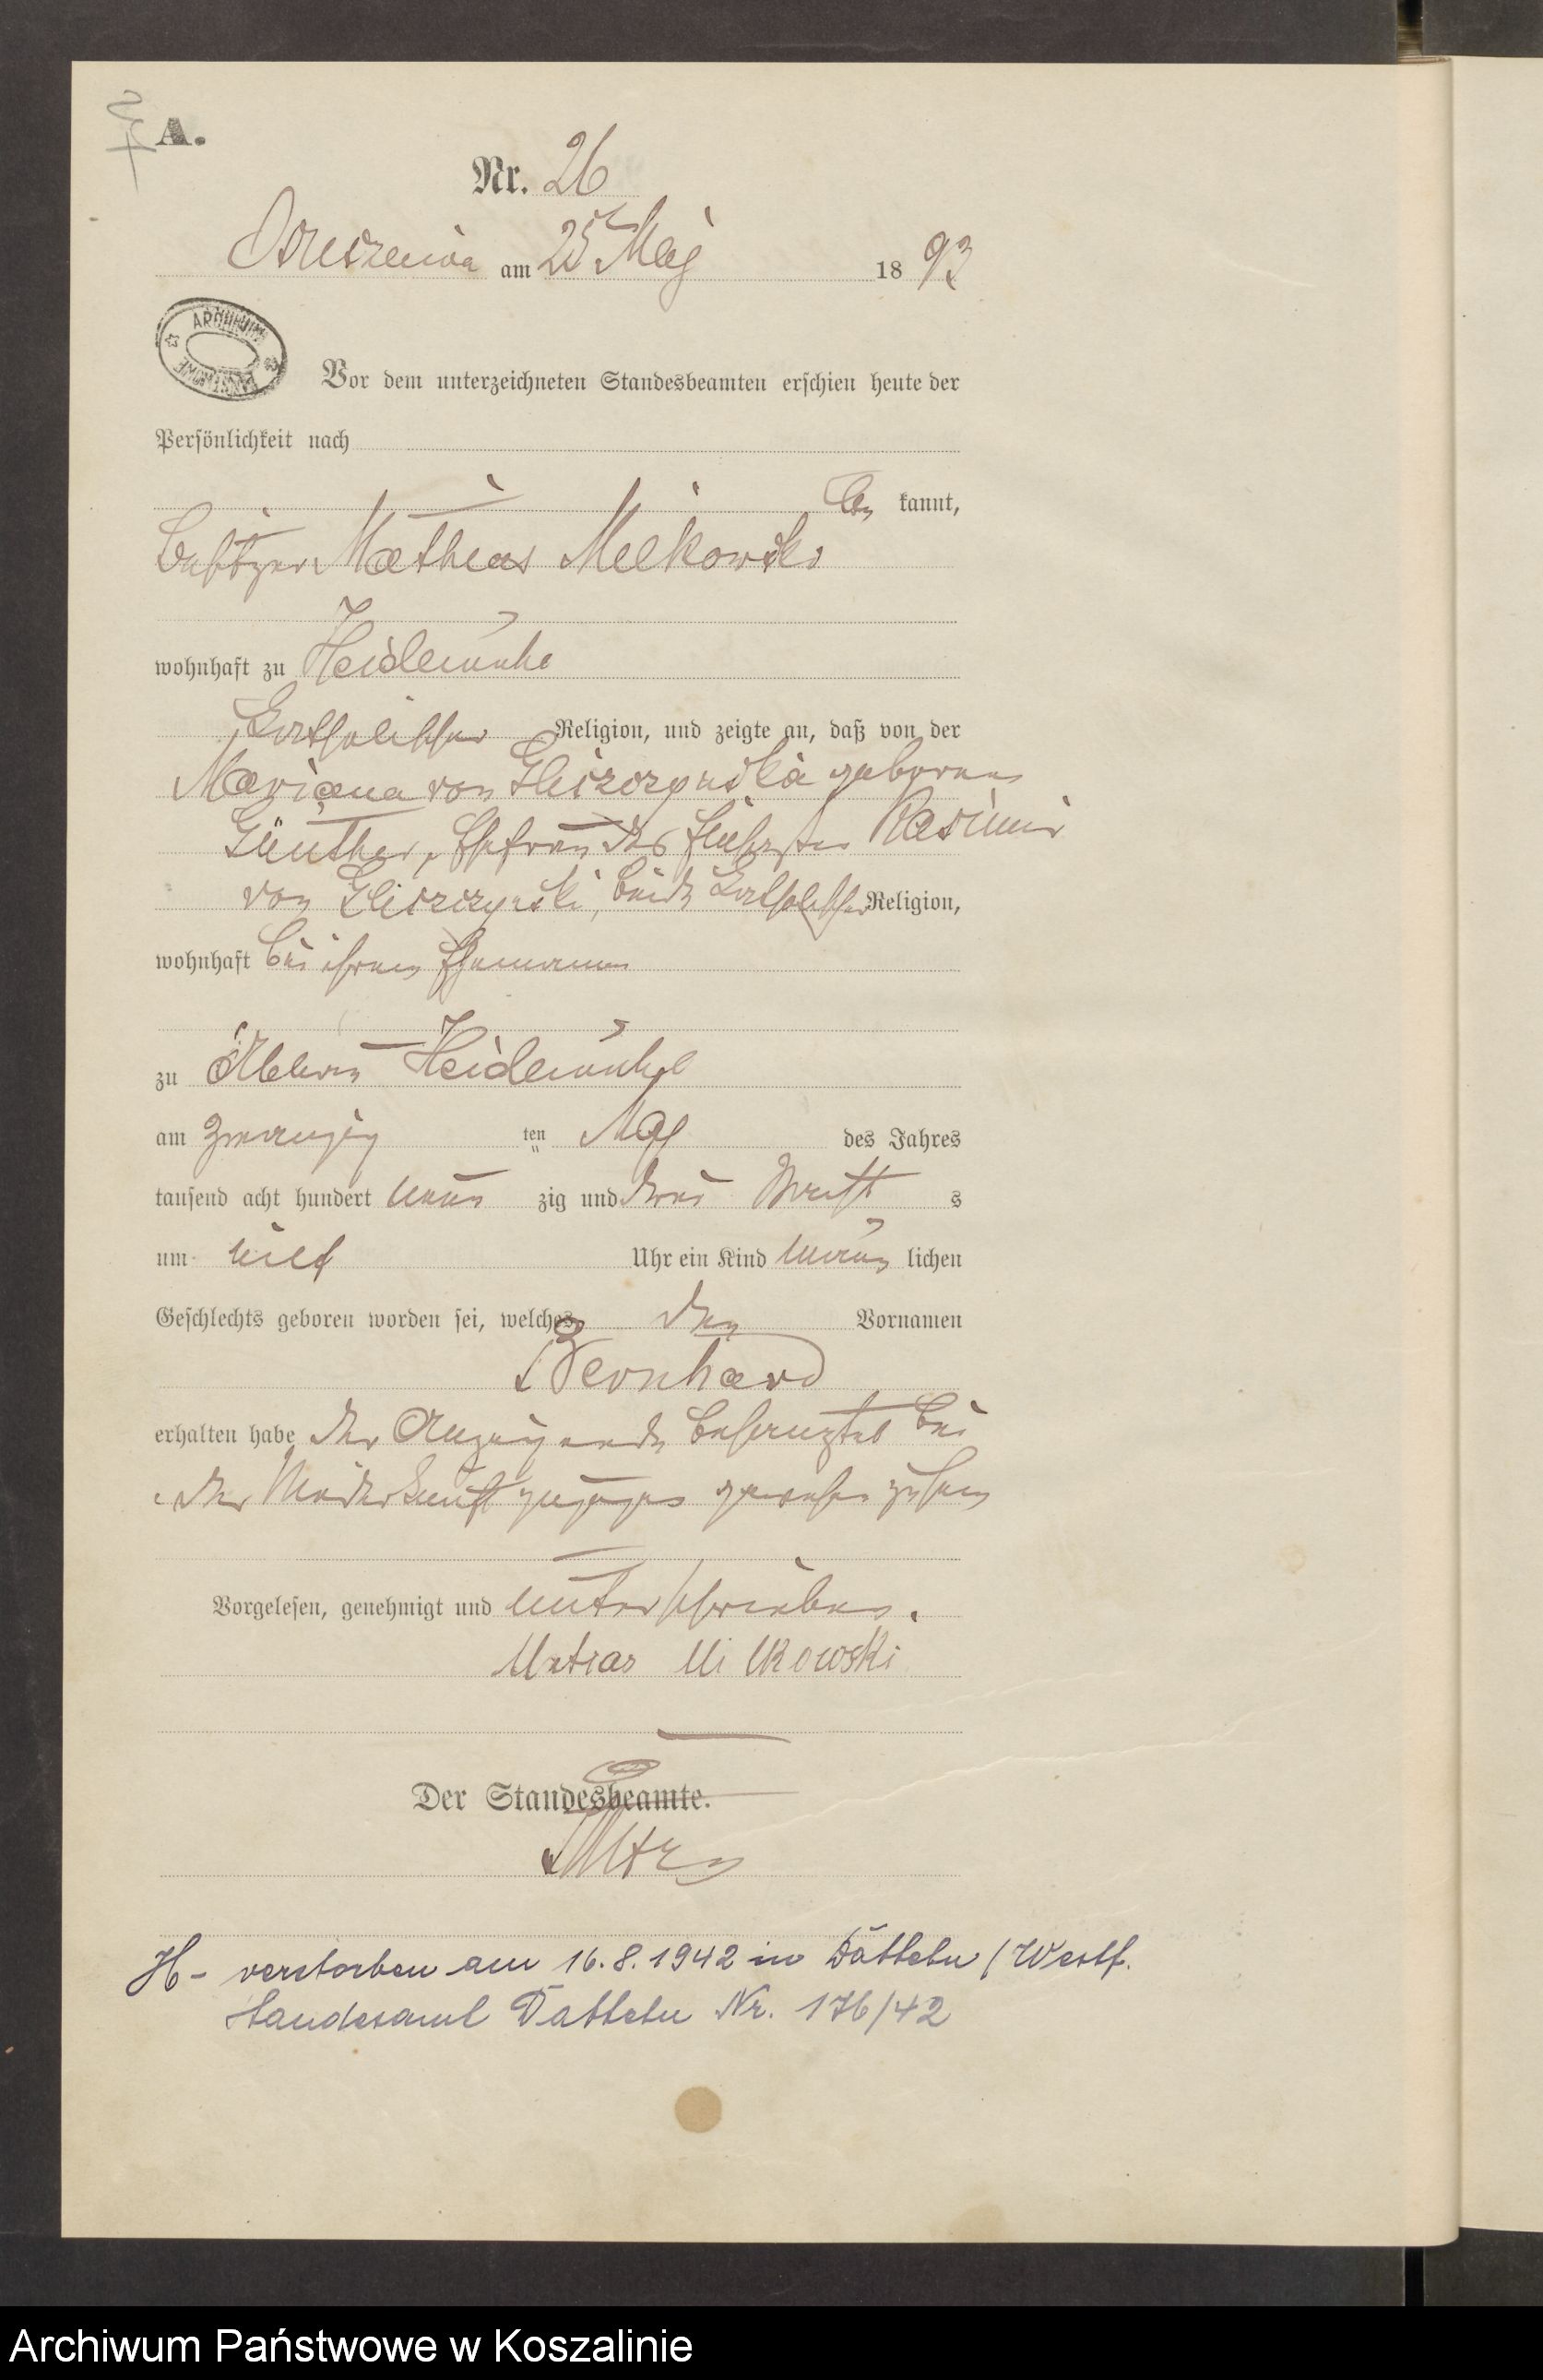 A.
Nr. 26
Osuszniza am 25 Maj 1893
ARCHIWUM PAŃSTWOWE
Vor dem unterzeichneten Standesbeamten erschien heute der
Persönlichkeit nach
be kannt,
Besitzer Matheas Melkowski
wohnhaft zu Heidemühl
katholischer Religion, und zeigte an, daß von der
Mariana von geborene
Günther, Ehefrau des Kasimir
von beide katholischer Religion,
wohnhaft bei ihrem Ehemanne
zu Heidemühl
am zwanzig ten Maj des Jahres
tausend acht hundert neun zig und drei Nachts
um elf Uhr ein Kind männlichen
Geschlechts geboren worden sei, welches den Vornamen
Bernhard
erhalten habe der Anzeigende bei
der Niederkunft zugegen gewesen zu sein
Vorgelesen, genehmigt und unterschrieben.
Matias Milkowski
Der Standesbeamte.
H- verstorben am 16.8.1942 in Datteln / Westf.
Standesamt Datteln Nr. 176/42
Archiwum Państwowe w Koszalinie